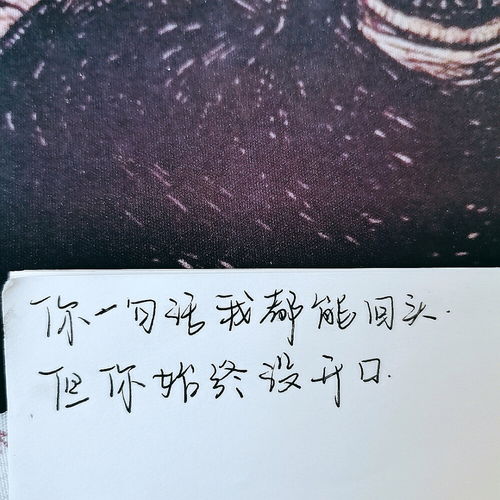 你一句话我都能回头.
但你始终没开口.